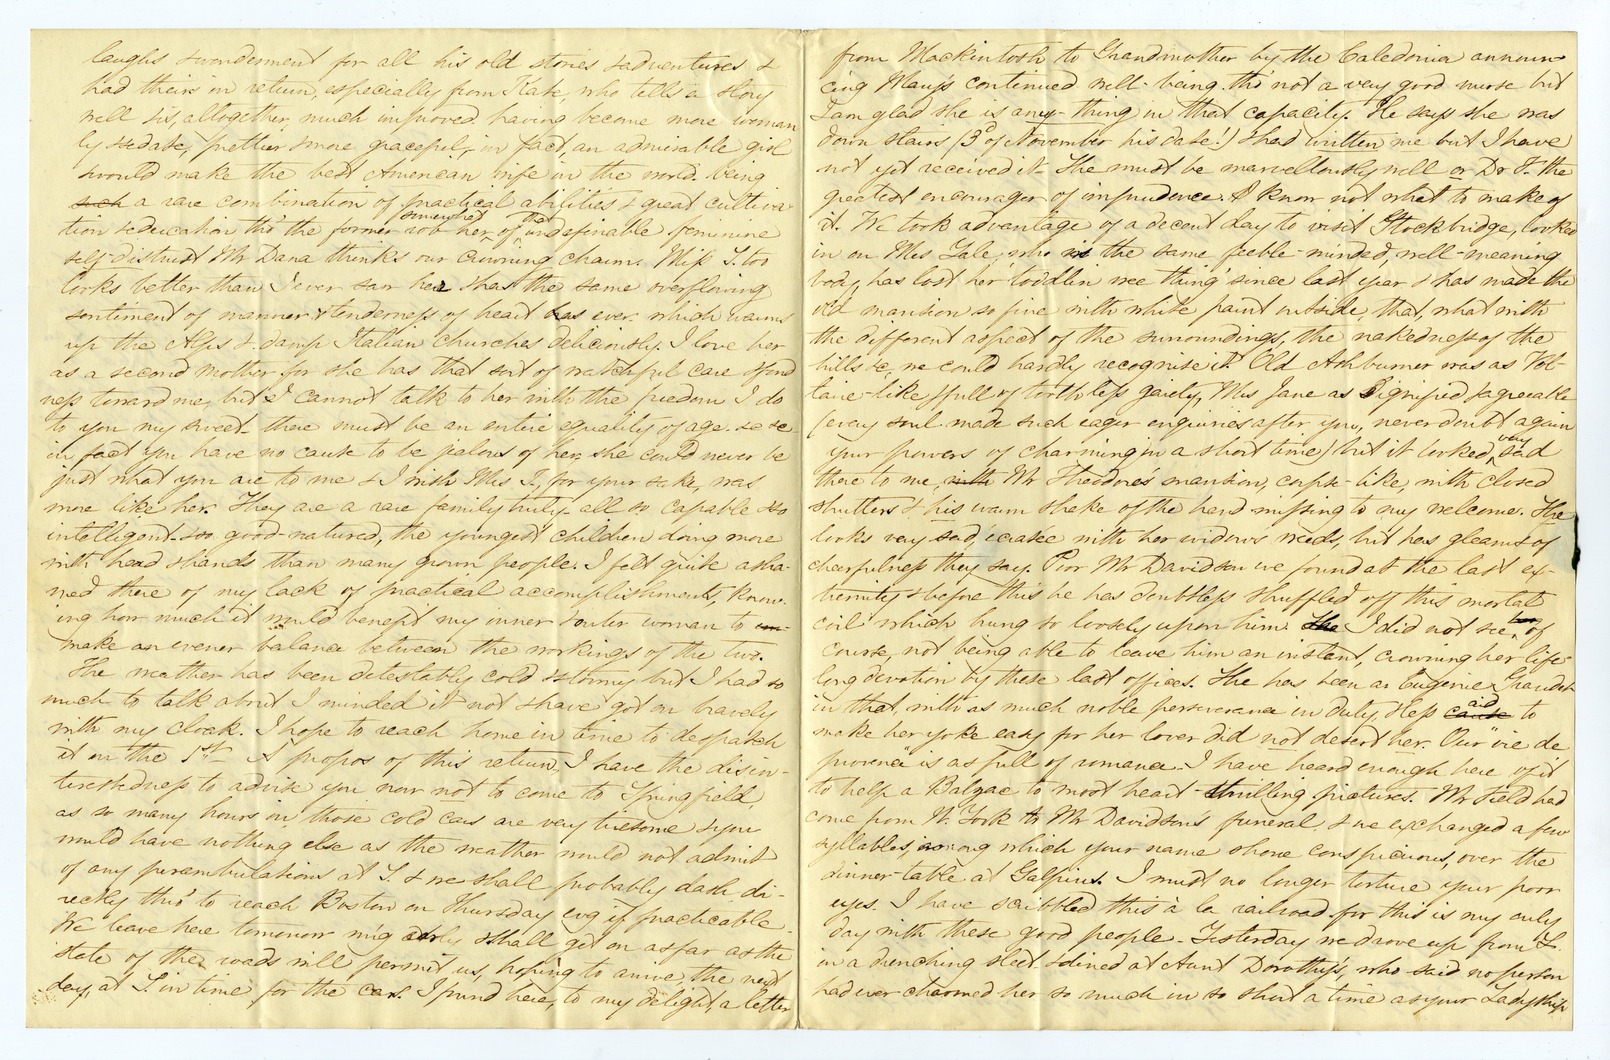 laughs & wonderment for all his old stories & adventures &
had theirs in return, especially from Kate, who tells a story
well & is, altogether, much improved having become more woman
ly sedate, prettier & more graceful, in fact, an admirable girl
& would make the best American wife in the world being
such a rare combination of practical abilities & great cultiva-
tion & education tho' the former rob her somewhat of that undefinable feminine
self-distrust Mr Dana thinks our crowning charm. Miss S. too
looks better than I ever saw her & has the same overflowing
sentiment of manner & tenderness of heart as ever which warms
up the Alps & damp Italian churches deliciously. I love her
as a second mother for she has that sort of watchful care & fond
ness toward me, but I cannot talk to her with the freedom I do
to you my sweet. there must be an entire equality of age &c &c
in fact you have no cause to be jealous of her, she could never be
just what you are to me & I wish Mrs T, for your sake, was
more like her. They are a rare family truly all so capable & so
intelligent & so good-natured, the youngest children doing more
with head & hands than many grown people. I felt quite asha-
med there of my lack of practical accomplishments, know-
ing how much it would benefit my inner & outer woman to
make an evener balance between the workings of the two.
The weather has been detestably cold & stormy but I had so
much to talk about I minded it not & have got on bravely
with my cloak. I hope to reach home in time to despatch
it on the 1st. A propos of this return, I have the disin-
terestedness to advise you now not to come to Springfield,
as so many hours in those cold cars are very tiresome & you
would have nothing else as the weather would not admit
of any perambulations at S. & we shall probably dash di-
rectly thro' to reach Boston on Thursday evg if practicable.
We leave here tomorrow m'g early & shall get on as far as the
state of the roads will permit us, hoping to arrive, the next
day, at S. in time for the cars. I found here, to my delight, a letter
from Mackintosh to Grandmother by the Caledonia announ-
cing Mary's continued well-being tho' not a very good nurse but
I am glad she is any-thing in that capacity. He says she was
down stairs (3d of November his date!) & had written me but I have
not yet received it. She must be marvellously well or Dr F. the
greatest encourager of imprudence. I know not what to make of
it. We took advantage of a decent day to visit Stockbridge, looked
in on Mrs Yale, who is the same feeble-minded, well-meaning
body, has lost her 'toddlin wee thing' since last year & has made the
old mansion so fine with white paint outside, that, what with
the different aspect of the surroundings, the nakedness of the
hills &c, we could hardly recognise it. Old Ashburner was as Vol-
taire-like & full of toothless gaiety, Mrs Jane as dignified & agreeable
(every soul made such eager enquiries after you, never doubt again
your powers of charming in a short time) but it looked very sad
there to me, with Mr Theodore's mansion, corpse-like, with closed
shutters & his warm shake of the hand missing to my welcome. She
looks very sad, écrasée with her widow's weeds, but has gleams of
cheerfulness they say. Poor Mr Davidson we found at the last ex-
tremity & before this he has doubtless shuffled off this mortal
coil which hung so loosely upon him. She I did not see her, of
course, not being able to leave him an instant, crowning her life-
long devotion by these last offices. She has been as Eugenie Grandet
in that, with as much noble perseverance in duty, & less cause aid to
make her yoke easy for her lover did not desert her. Our "vie de
province" is as full of romance. I have heard enough here of it
to help a Balzac to most heart-thrilling pictures. Mr Field had
come from N. York to Mr Davidson's funeral & we exchanged a few
syllables, among which your name shone conspicuous, over the
dinner-table at Galpins. I must no longer torture your poor
eyes. I have scribbled this à la railroad for this is my only
day with these good people. Yesterday we drove up from L.
in a drenching sleet & dined at Aunt Dorothy's, who said no person
had ever charmed her so much in so short a time as your Ladyship